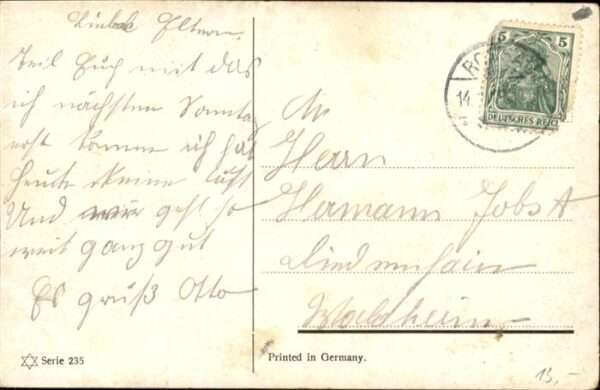 Liebe Eltern.
Teil Euch mit das
ich nächsten Sonntag
erst komme ich hab
heute keine Lust
Und mir geht so
weit ganz gut
Es grüß Otto
An
Herrn
Hermann Jobst
Waldheim
5 5
DEUTSCHES REICH
14
Serie 235
Printed in Germany.
13,-